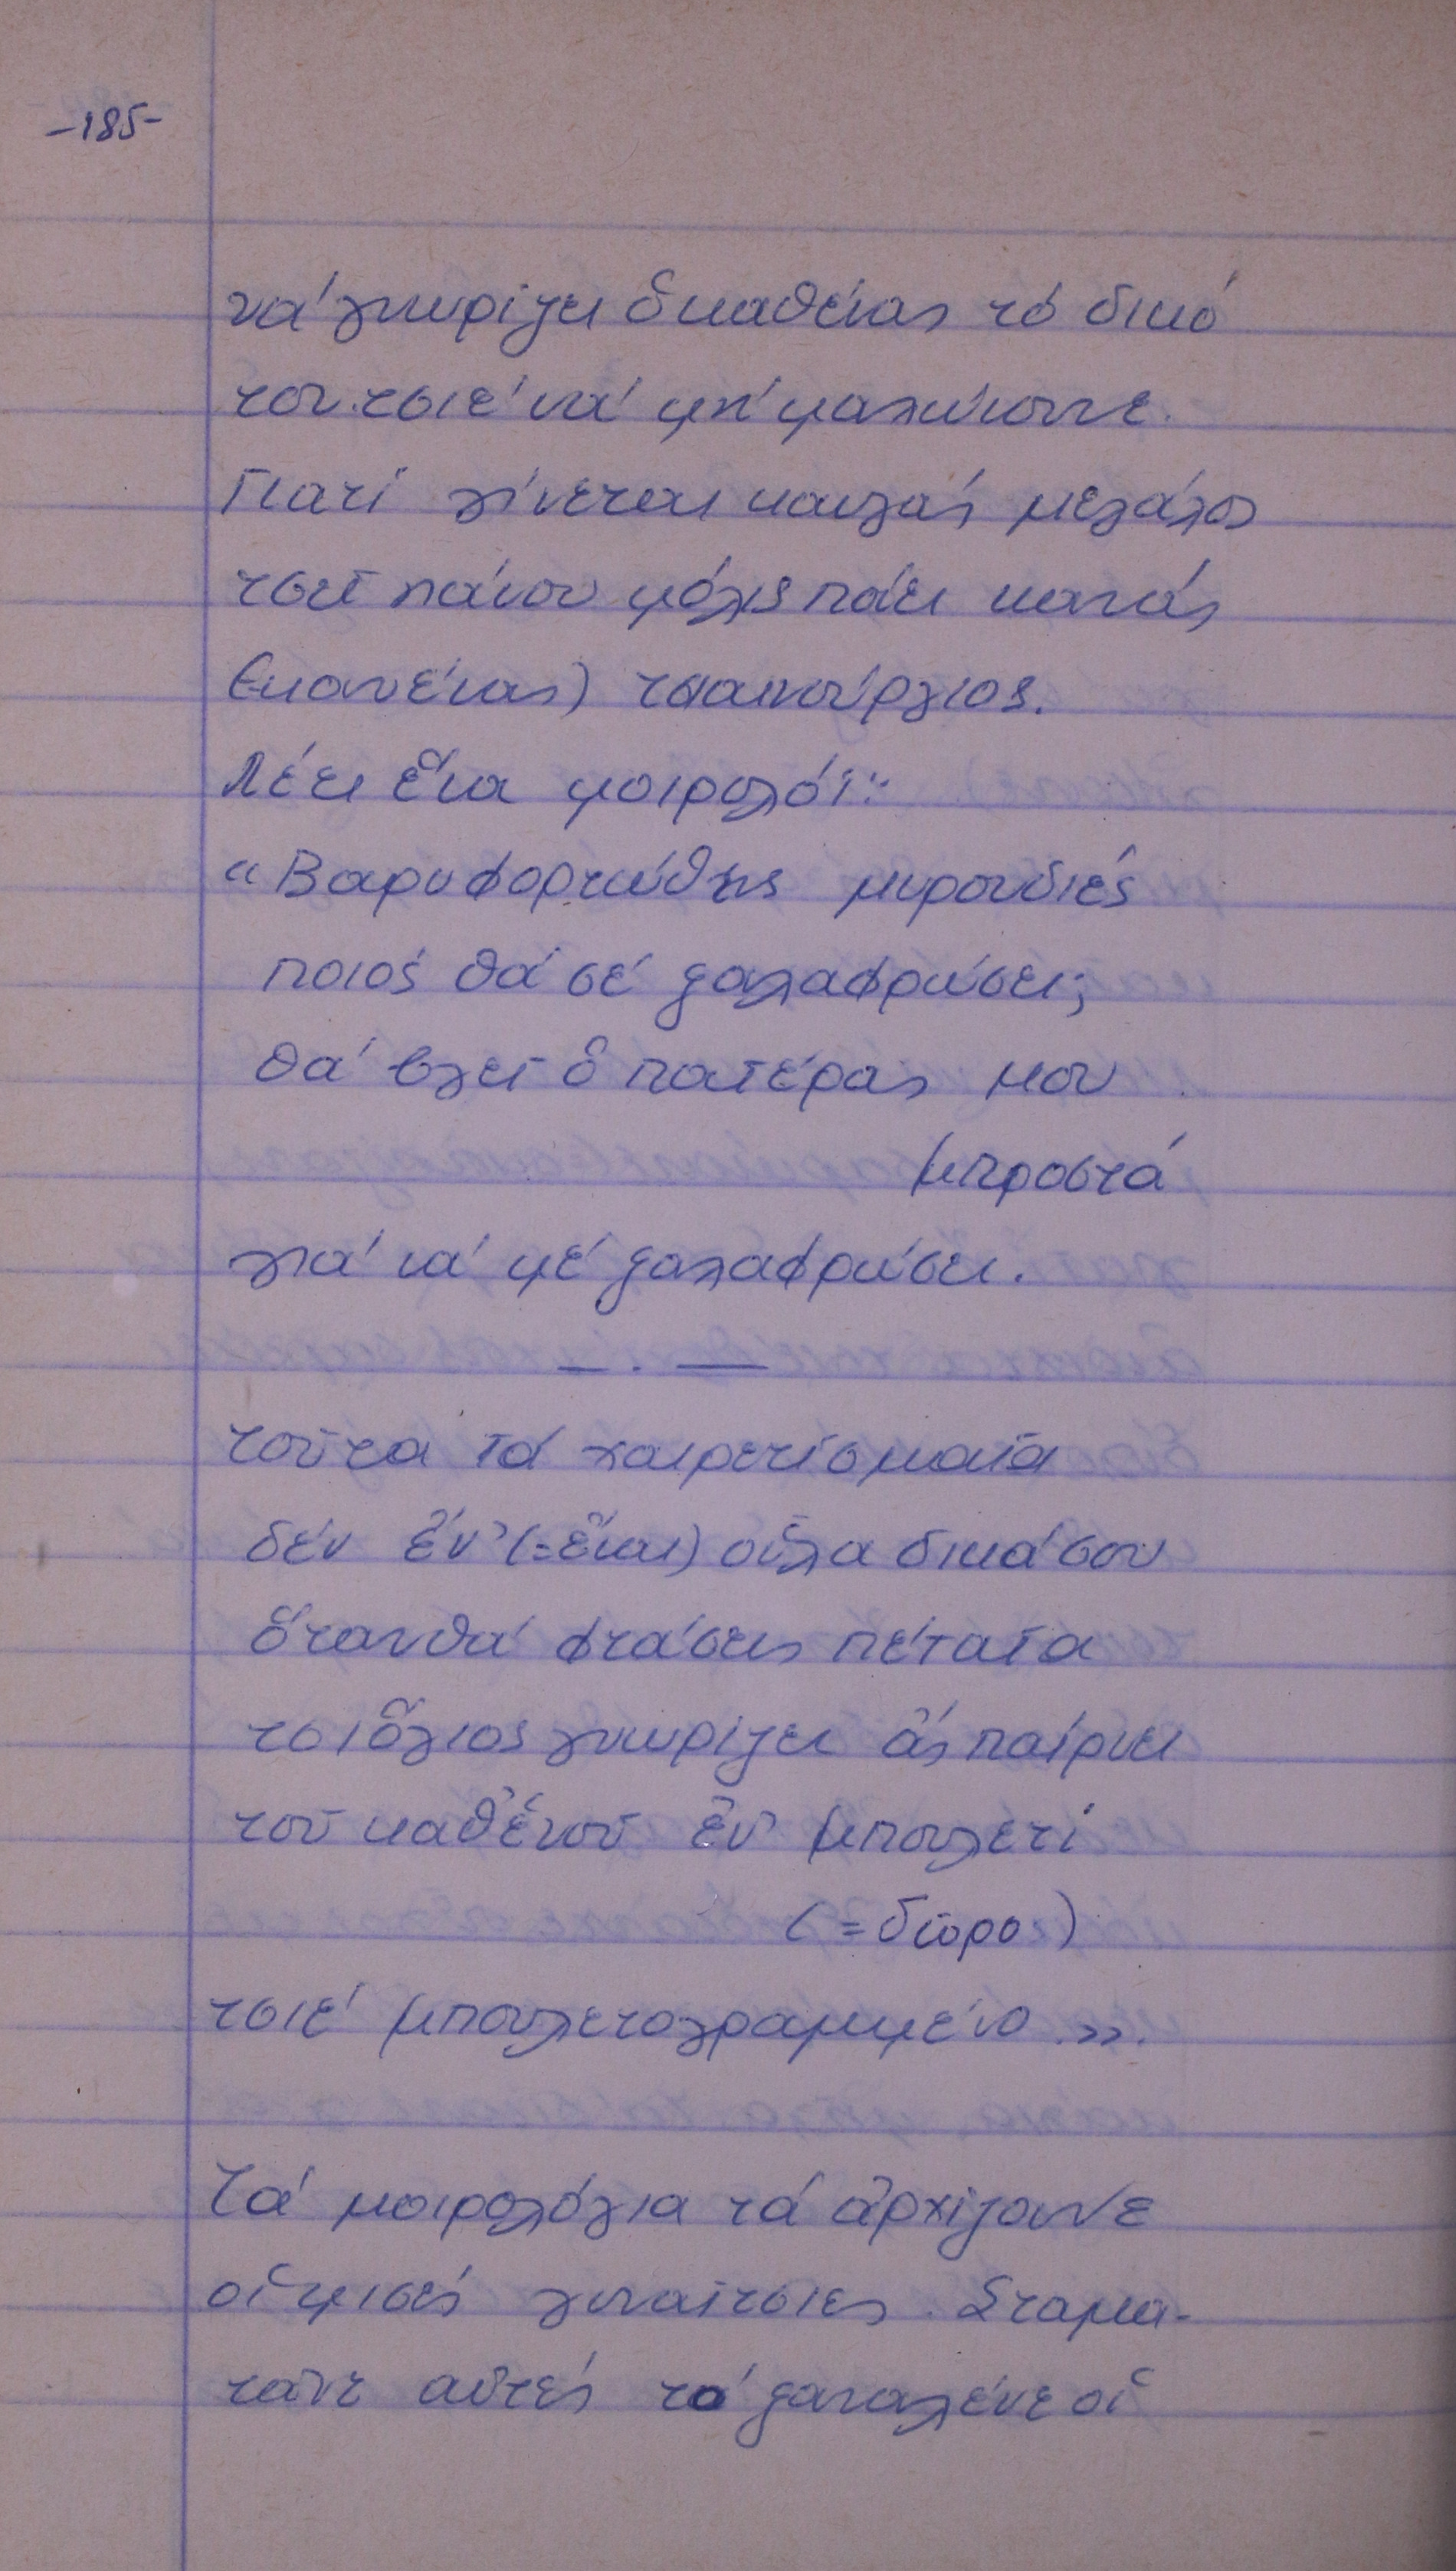 -185-
νά γνωρίζει ὁ καθένας τό δικό
του τσιέ νά μή μαλώνουνε.
Γιατί γίνεται καυγάς μεγάλος
τσεῖ πάνου μόλις πάει κανάς
(=κανένας) τσαινούργιος.
Λέει ἕνα μοιρολόϊ:
«Βαρυφορτώθης μυρουδιές
ποιός θά σέ ξαλαφρώσει;
θά βγεῖ ὁ πατέρας μου
μπροστά
γιά νά μέ ξαλαφρώσει.
— . —
τοῦτα τά χαιρετίσματα
δέν ἔν' (=εἶναι) οὗλα δικά σου
ὅταν θά φτάσεις πέτα τα
τσι ὅγιος γνωρίζει ἄς παίρνει
τοῦ καθ' ἑνοῦ ἕν' μπουλετί
(=δῶρο)
τσιέ μπουλετογραμμένο».
Τά μοιρολόγια τά ἀρχίζουνε
οἱ μισές γυναῖτσιες. Σταμα-
τᾶνε αὐτές τό ξαναλένε οἱ